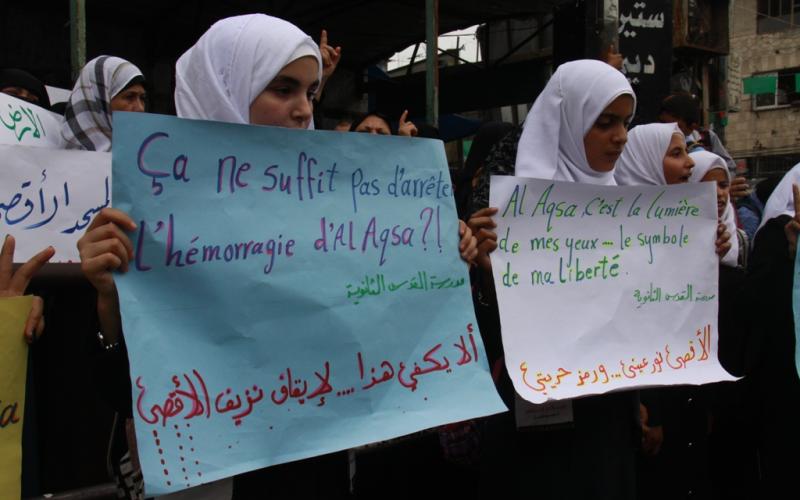 الأرض
المسجد الأقصى
Ça ne suffit pas d'arrête
l'hémorragie d'Al Aqsa?!
مدرسة القدس الثانوية
ألا يكفي هذا .... لإيقاف نزيف الأقصى
Al Aqsa, c'est la lumière
de mes yeux... le symbole
de ma liberté.
مدرسة القدس الثانوية
الأقصى نور عيني... ورمز حريتي
ستير